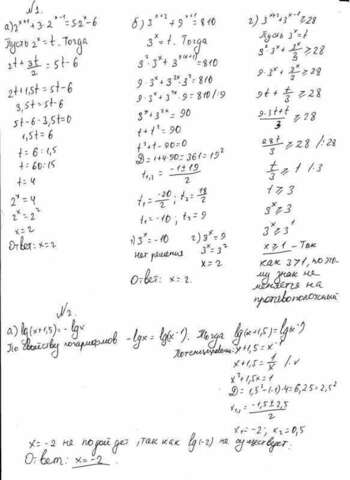 №1.
а) 2ˣ⁺¹+3·2ˣ⁻¹=5·2ˣ-6
Пусть 2ˣ=t. Тогда
2t+3t/2=5t-6
2t+1,5t=5t-6
3,5t=5t-6
5t-6-3,5t=0
1,5t=6
t=6:1,5
t=60:15
t=4
2ˣ=4
2ˣ=2²
x=2
Ответ: x=2
б) 3ˣ⁺²+9ˣ⁺¹=810
3ˣ=t. Тогда
3²·3ˣ+3²⁽ˣ⁺¹⁾=810
9·3ˣ+3²ˣ·3²=810
9·3ˣ+3²ˣ·9=810 /:9
3ˣ+3²ˣ=90
t+t²=90
t²+t-90=0
D=1+4·90=361=19²
t₁,₂=-1±19/2
t₁=-20/2; t₂=18/2
t₁=-10; t₂=9
1) 3ˣ=-10
нет решения
2) 3ˣ=9
3ˣ=3²
x=2
Ответ: x=2.
3ˣ⁺²+3ˣ⁻¹≥28
Пусть 3ˣ=t
3²·3ˣ+3ˣ/3≥28
9·3ˣ+3ˣ/3≥28
9t+t/3≥28
9·3t+t/3≥28
28t/3≥28 /:28
t/3≥1 /·3
t≥3
3ˣ≥3
3ˣ≥3¹
x≥1 - Так
как 3>1, поэто-
му знак не
меняется на
противоположный
№2.
а) lg(x+1,5)=-lgx
По свойству логарифмов -lgx=lg(x⁻¹). Тогда lg(x+1,5)=lg(x⁻¹)
Потенцируем: x+1,5=x⁻¹
x+1,5=1/x /·x
x²+1,5x=1
D=1,5²-(-1)·4=6,25=2,5²
x₁,₂=-1,5±2,5/2
x₁=-2; x₂=0,5
x=-2 не подойдет, так как lg(-2) не существует.
Ответ: x=-2.